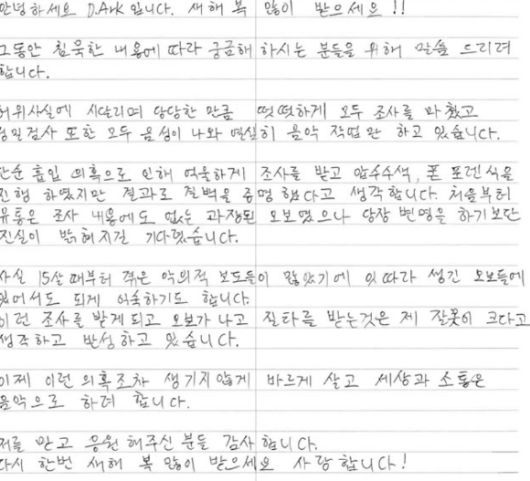 안녕하세요 D.Ark 입니다. 새해 복 많이 받으세요 !!
그동안 침묵한 내용에 따라 궁금해 하시는 분들을 위해 말씀 드리려
합니다.
허위사실에 시달리며 당당한 만큼 떳떳하게 모두 조사를 마쳤고
정밀검사 또한 모두 음성이 나와 열심히 음악 작업만 하고 있습니다.
단순 흡입 의혹으로 인해 억울하게 조사를 받고 압수수색, 폰 포렌식을
진행 하였지만 결과로 결백을 증명 했다고 생각합니다. 처음부터
유통은 조사 내용에도 없는 과장된 오보였으나 당장 변명을 하기보단
진실이 밝혀지길 기다렸습니다.
사실 15살 때부터 겪은 악의적 보도들이 많았기에 잇따라 생긴 오보들에
있어서도 되게 억울하기도 합니다.
이런 조사를 받게 되고 오보가 나고 질타를 받는것은 제 잘못이 크다고
생각하고 반성하고 있습니다.
이제 이런 의혹조차 생기지않게 바르게 살고 세상과 소통은
음악으로 하려 합니다.
저를 믿고 응원 해주신 분들 감사합니다.
다시 한번 새해 복 많이 받으세요 사랑합니다!